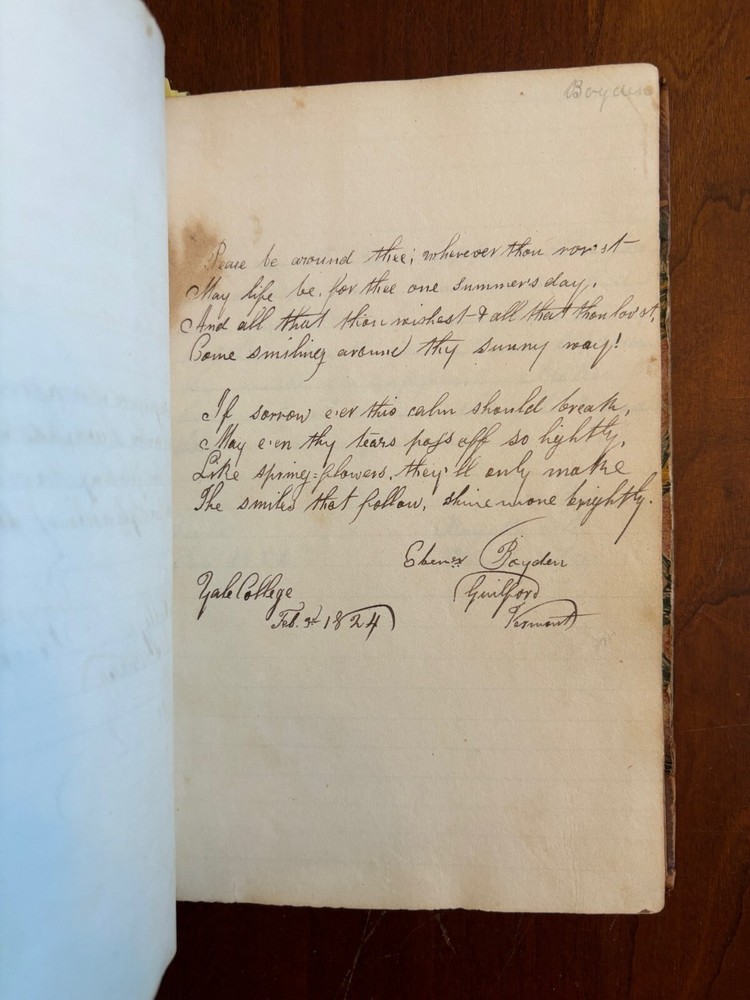 Boyden
Peace be around thee; wherever thou rov'st
May life be, for thee one summer's day,
And all that thou wishest & all that thou lov'st,
Come smiling around thy sunny way!
If sorrow e'er this calm should break,
May e'en thy tears pass off so lightly,
Like spring-flowers, they'll only make
The smiles that follow, shine more brightly.
Ebenr Boyden
Yale College Guilford
Feb. 3d 1824 Vermont